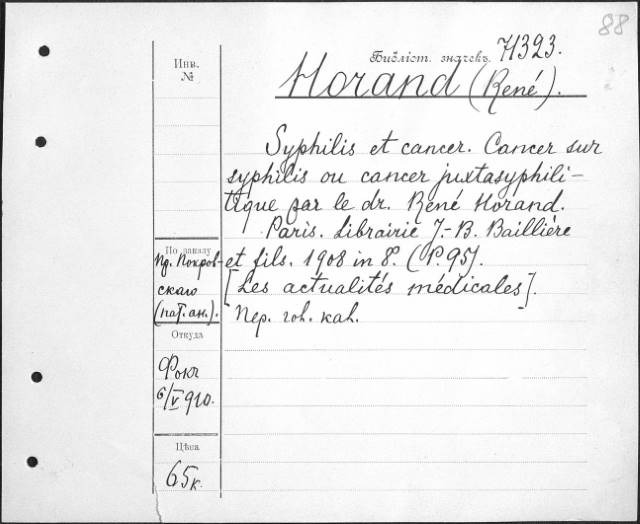 88
Библіот. значекъ 71323.
Horand (René).
Инв.
№
Syphilis et cancer. Cancer sur
syphilis ou cancer juxtasyphili-
tique par le dr. René Horand.
Paris. Librairie J.-B. Baillière
et fils. 1908 in 8º. (P. 95).
[Les actualités médicales].
По заказу
Пд. Покров-
скаго
(пат. ан.).
Откуда
6/V 910.
Цѣна
65к.